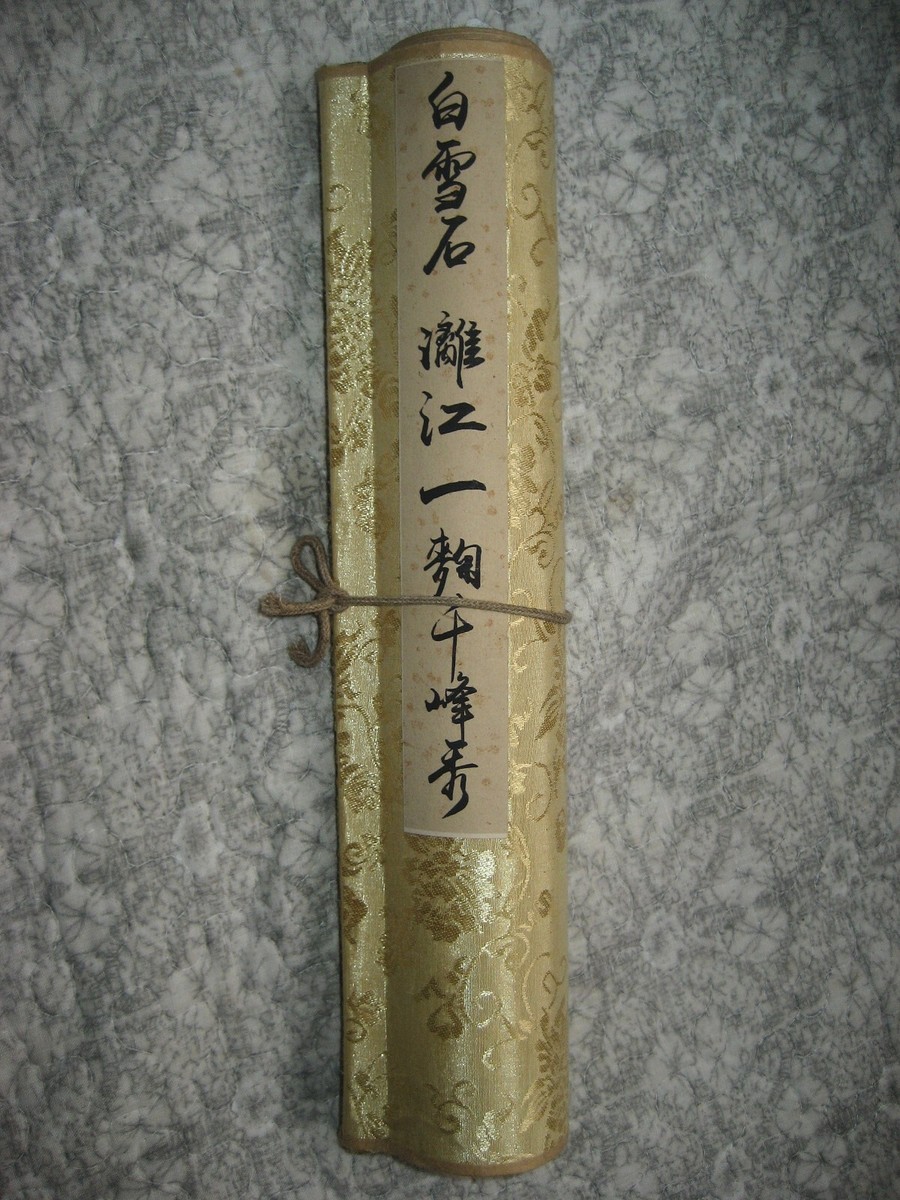 白雪石 灕江一麴千峰秀